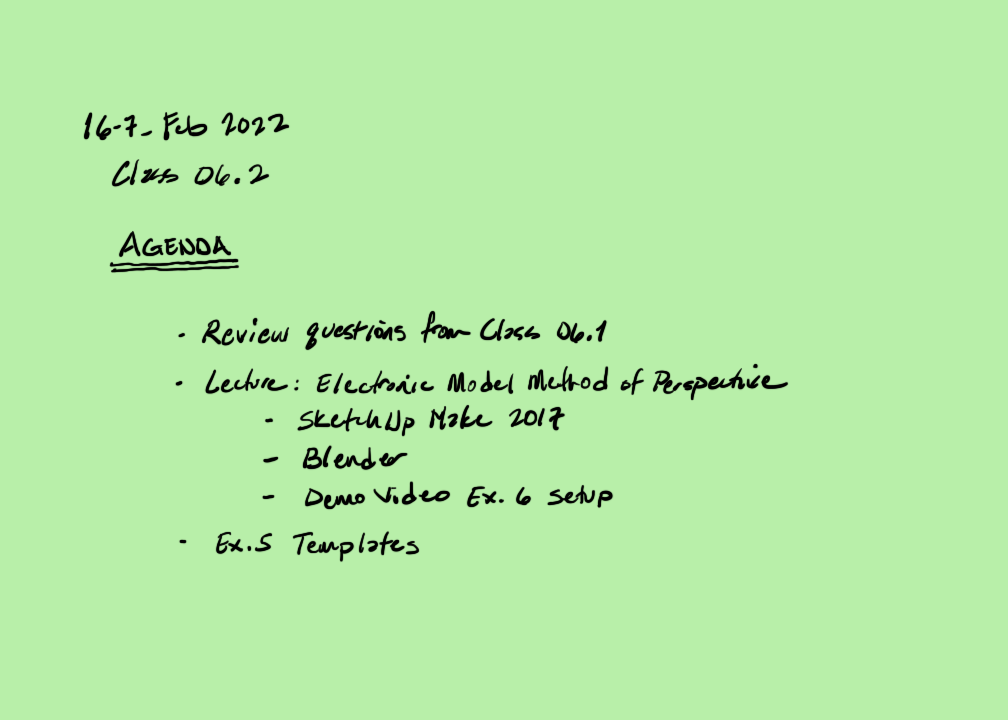 16-7_ Feb 2022
Class 06.2
AGENDA
- Review questions from Class 06.1
- Lecture: Electronic Model Method of Perspective
- SketchUp Make 2017
- Blender
- Demo Video Ex. 6 setup
- Ex.5 Templates